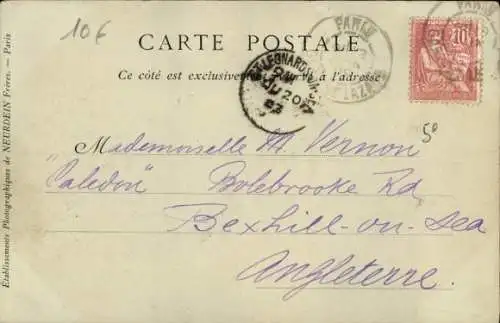 10€
PARIS
CARTE POSTALE
Ce côté est exclusivement réservé à l'adresse
ST LEONARDS-ON-SEA
JU 20
03
10
5°
Mademoiselle M. Vernon
"Caledon" Bolebrooke Rd
Bexhill-on-Sea
Angleterre.
Établissements Photographiques de NEURDEIN Frères. — Paris